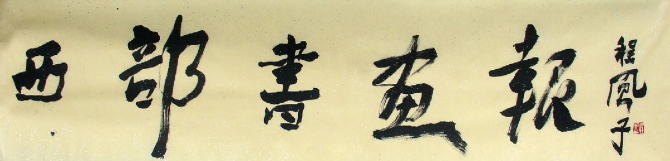 西部書画報
程風子